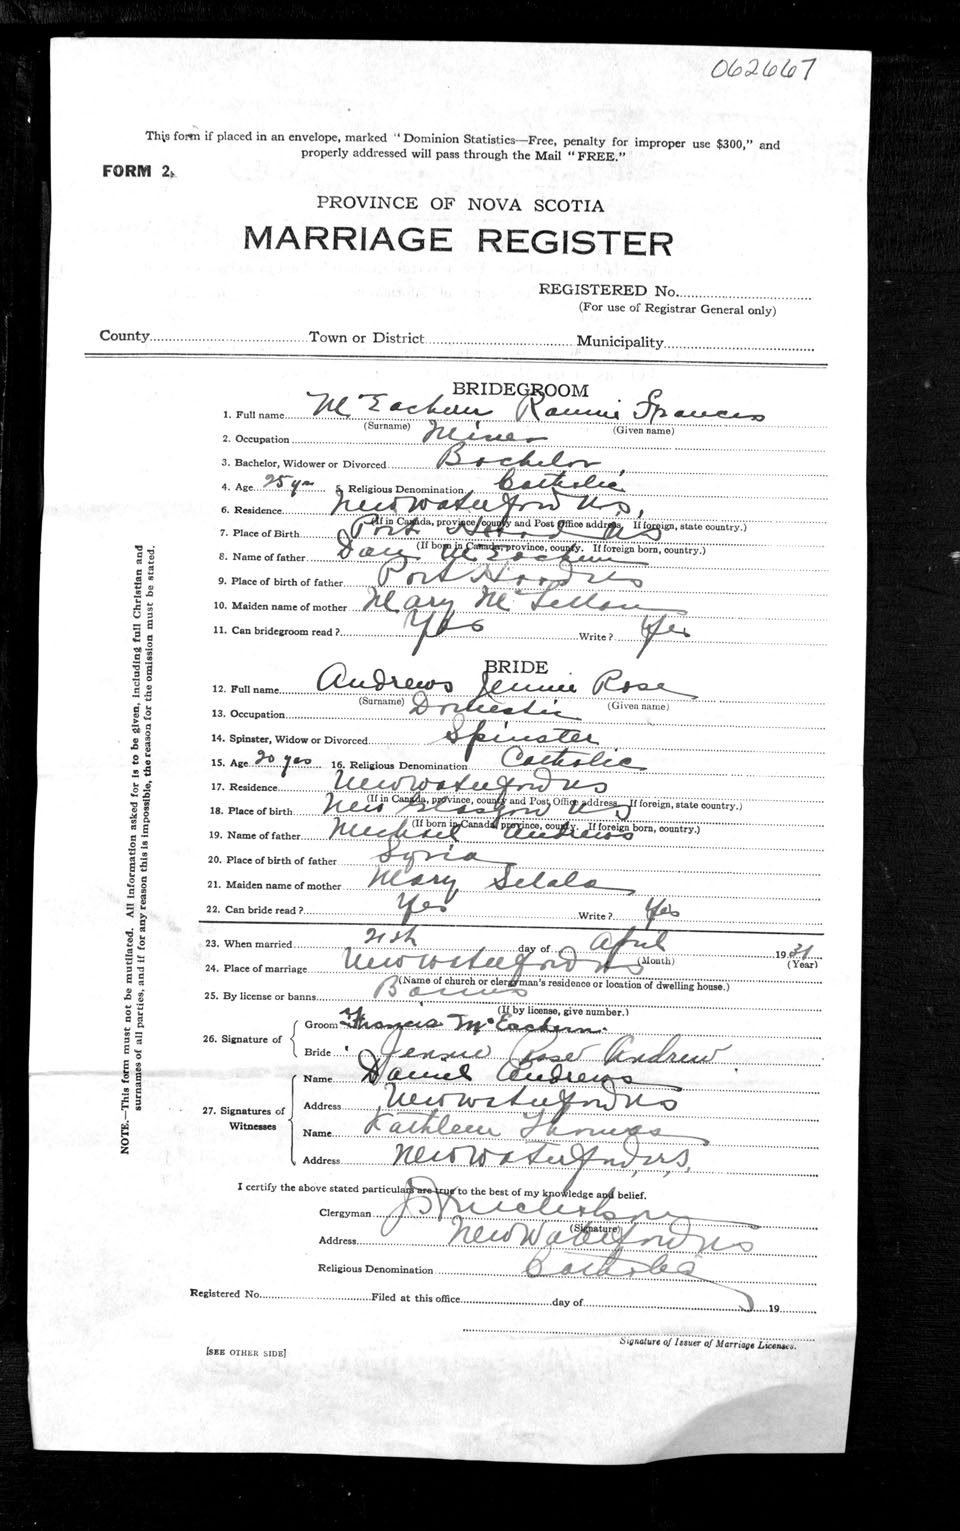 062667
This form if placed in an envelope, marked "Dominion Statistics—Free, penalty for improper use $300," and
properly addressed will pass through the Mail "FREE."
FORM 2.
PROVINCE OF NOVA SCOTIA
MARRIAGE REGISTER
REGISTERED No.
(For use of Registrar General only)
County Town or District Municipality
BRIDEGROOM
1. Full name McEachern Rannie Frances
(Surname) (Given name)
2. Occupation Miner
3. Bachelor, Widower or Divorced Bachelor
4. Age 25 yrs 5. Religious Denomination Catholic
6. Residence New Waterford N.S.
(If in Canada, province, county and Post Office address. If foreign, state country.)
7. Place of Birth Port Hood NS
(If born in Canada, province, county. If foreign born, country.)
8. Name of father Dan McEachern
9. Place of birth of father Port Hood NS
10. Maiden name of mother Mary McLellan
11. Can bridegroom read? Yes Write? Yes
BRIDE
12. Full name Andrews Jennie Rose
(Surname) (Given name)
13. Occupation Domestic
14. Spinster, Widow or Divorced Spinster
15. Age 20 yrs 16. Religious Denomination Catholic
17. Residence New Waterford NS
(If in Canada, province, county and Post Office address. If foreign, state country.)
18. Place of birth New Glasgow NS
(If born in Canada, province, county. If foreign born, country.)
19. Name of father Michael Andrews
20. Place of birth of father Syria
21. Maiden name of mother Mary Selala
22. Can bride read? Yes Write? Yes
23. When married 21st day of April 1931
(Month) (Year)
24. Place of marriage New Waterford NS
(Name of church or clergyman's residence or location of dwelling house.)
25. By license or banns Banns
(If by license, give number.)
26. Signature of
Groom Francis McEachern.
Bride Jennie Rose Andrew
27. Signatures of Witnesses
Name Daniel Andrews
Address New Waterford NS
Name Kathleen Thomas
Address New Waterford, N.S,
I certify the above stated particulars are true to the best of my knowledge and belief.
Clergyman
(Signature)
Address New Waterford NS
Religious Denomination Catholic
Registered No. Filed at this office day of 19
Signature of Issuer of Marriage Licenses.
[SEE OTHER SIDE]
NOTE.—This form must not be mutilated. All information asked for is to be given, including full Christian and
surnames of all parties, and if for any reason this is impossible, the reason for the omission must be stated.